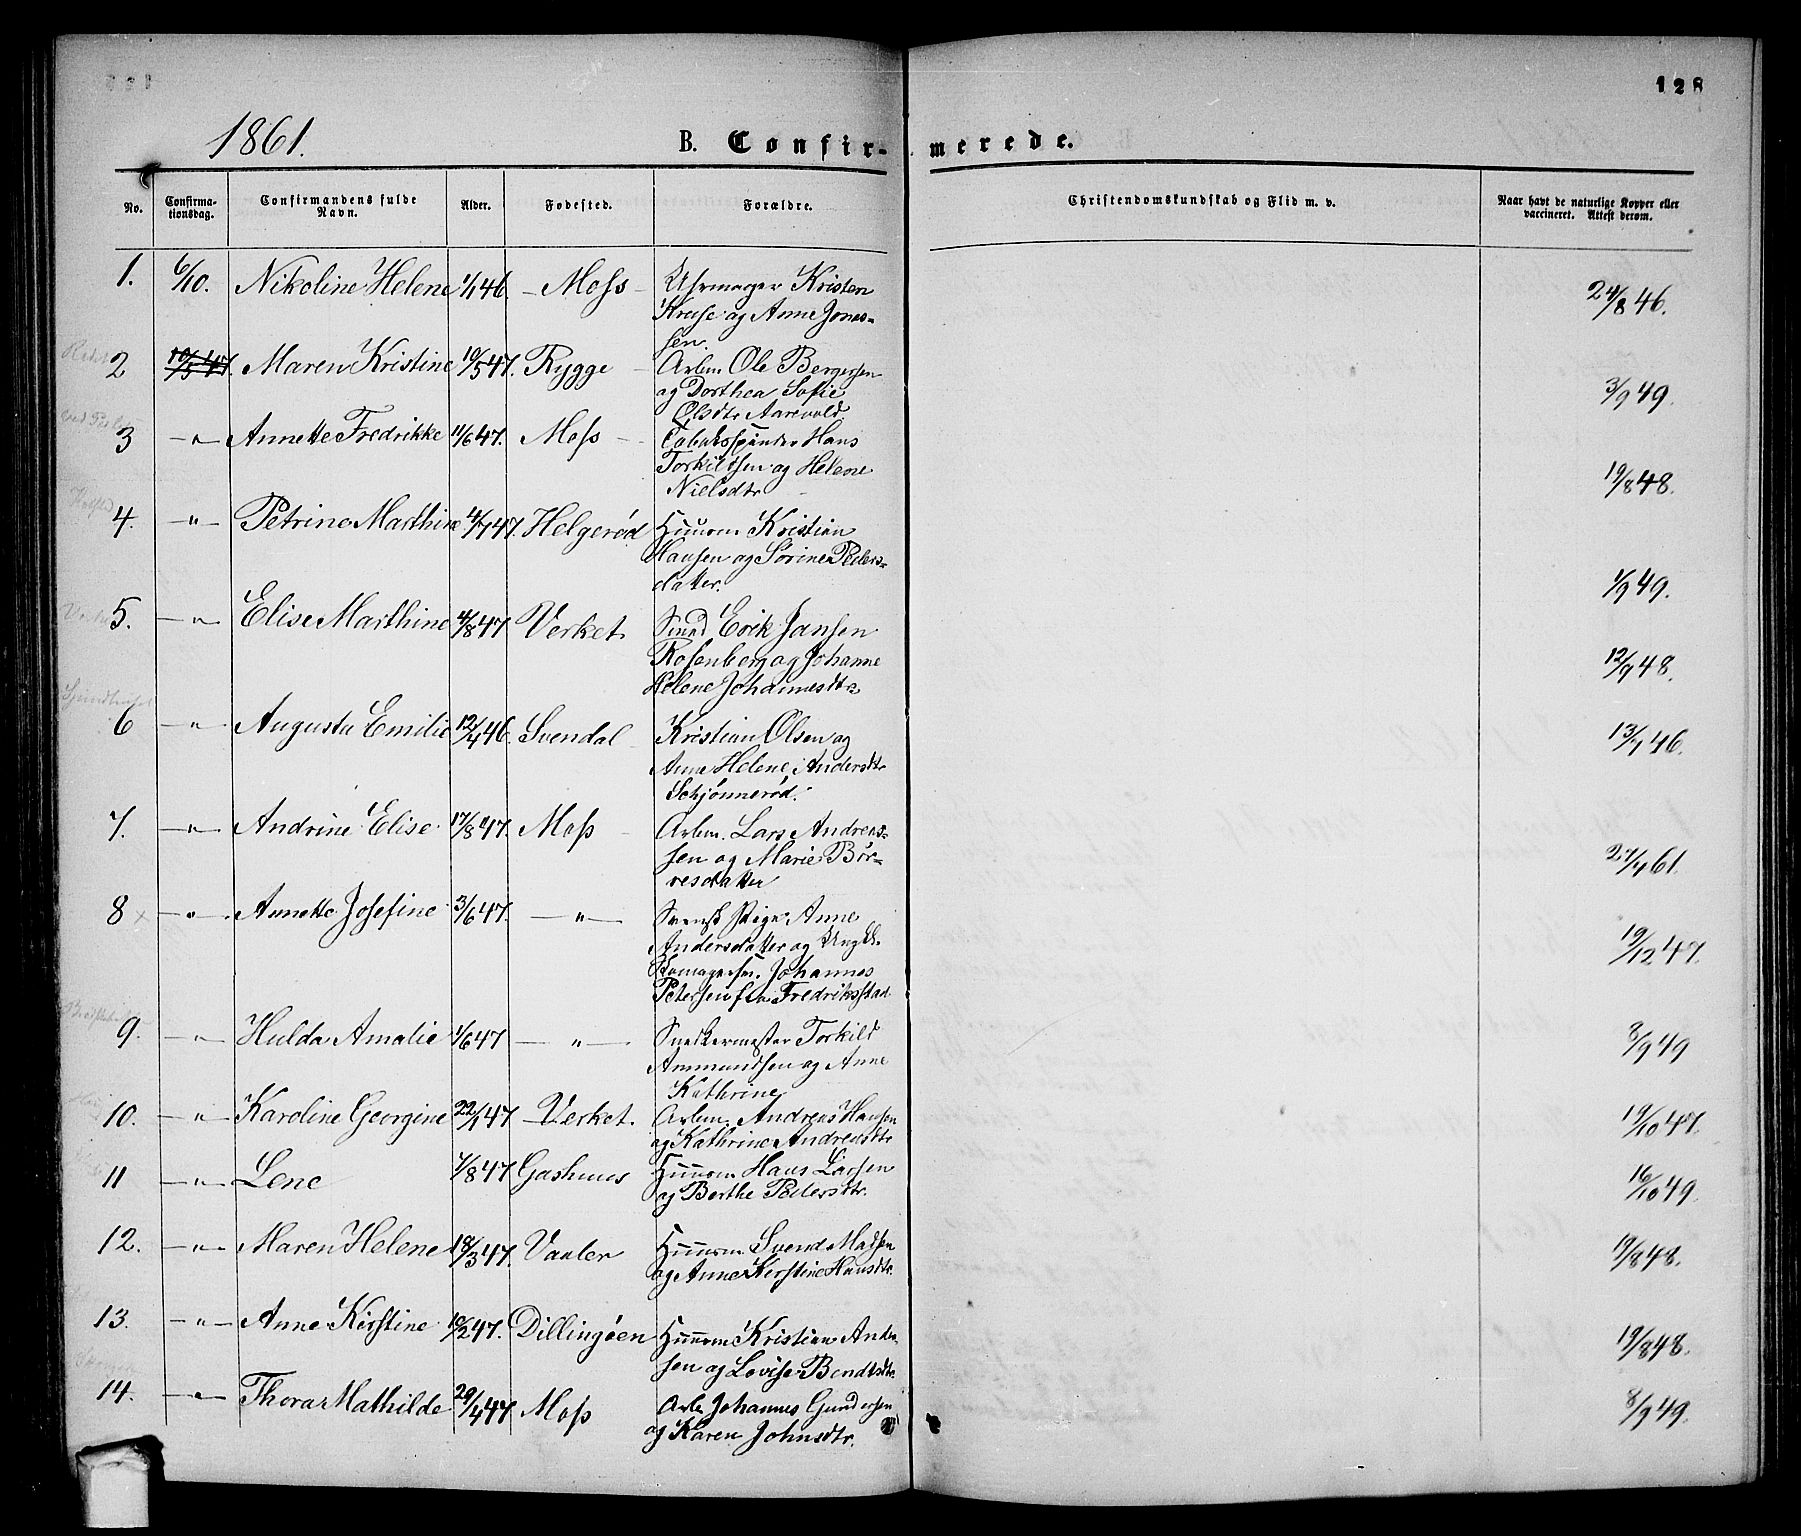 128
1861.
B. Confir- merede.
No.
Confirma-
tionsdag.
Confirmandens fulde
Navn.
Alder.
Fødested.
Forældre.
Christendomskundskab og Flid m. v.
Naar havt de naturlige Kopper eller
vaccineret. Attest derom.
1. 6/10. Nikoline Helene 1/1 46. – Moss – Uhrmager Kristen
Kruse og Anne Jones-
sen.
24/8 46.
2 10/5 47. Maren Kristine 10/5 47. Rygge – Arbm. Ole Bergersen
og Dorthea Sofie
Olsdtr Aarevold.
3/9 49.
3 – " – Annette Fredrikke 11/6 47. Moss – Tobaksspinder Hans
Torkildsen og Helene
Nielsdtr
19/8 48.
4. – " – Petrine Marthine 4/7 47. Helgerød Huusm Kristian
Hansen og Sørine Peders-
datter.
1/9 49.
5. – " – Elise Marthine 4/8 47 Verket. Smed Erik Jansen
Rosenberg og Johanne
Helene Johannesdtr
12/9 48.
6 – " – Augusta Emilie 12/4 46. Svendal – Kristian Olsen og
Anne Helene Andersdtr
Schjønnerød.
13/7 46.
7. – " – Andrine Elise. 17/8 47. Moss – Arbm. Lars Andreas-
sen og Marie Bør-
resdatter
27/7 61.
8 × – " – Annette Josefine 3/6 47. – " – Svensk Pige Anne
Andersdatter og Ungk.
Johannes
Petersen fra Fredriksstad
19/12 47.
9. – " – Hulda Amalie 1/6 47 – " – Snedkermester Torkild
Ammundsen og Anne
Kathrine
8/9 49
10. – " – Karoline Georgine 22/1 47 – Verket. Arbm. Andreas Hansen
og Kathrine Andreasdtr
19/10 47.
11 – " – Lene 7/8 47 Gashuus Huusm Hans Larsen
og Berthe Pedersdtr.
16/10 49.
12. – " – Maren Helene 18/3 47. Vaaler Huusm Svend Madsen
og Anne Kerstine Hansdtr.
19/8 48.
13. – " – Anne Kirstine 10/2 47. Dillingøen Huusm Kristian Ander-
sen og Lovise Bendtsdtr.
19/8 48.
14. – " – Thora Mathilde 29/4 47 Moss Arb. Johannes Gundersen
og Karen Johnsdtr.
8/9 49.